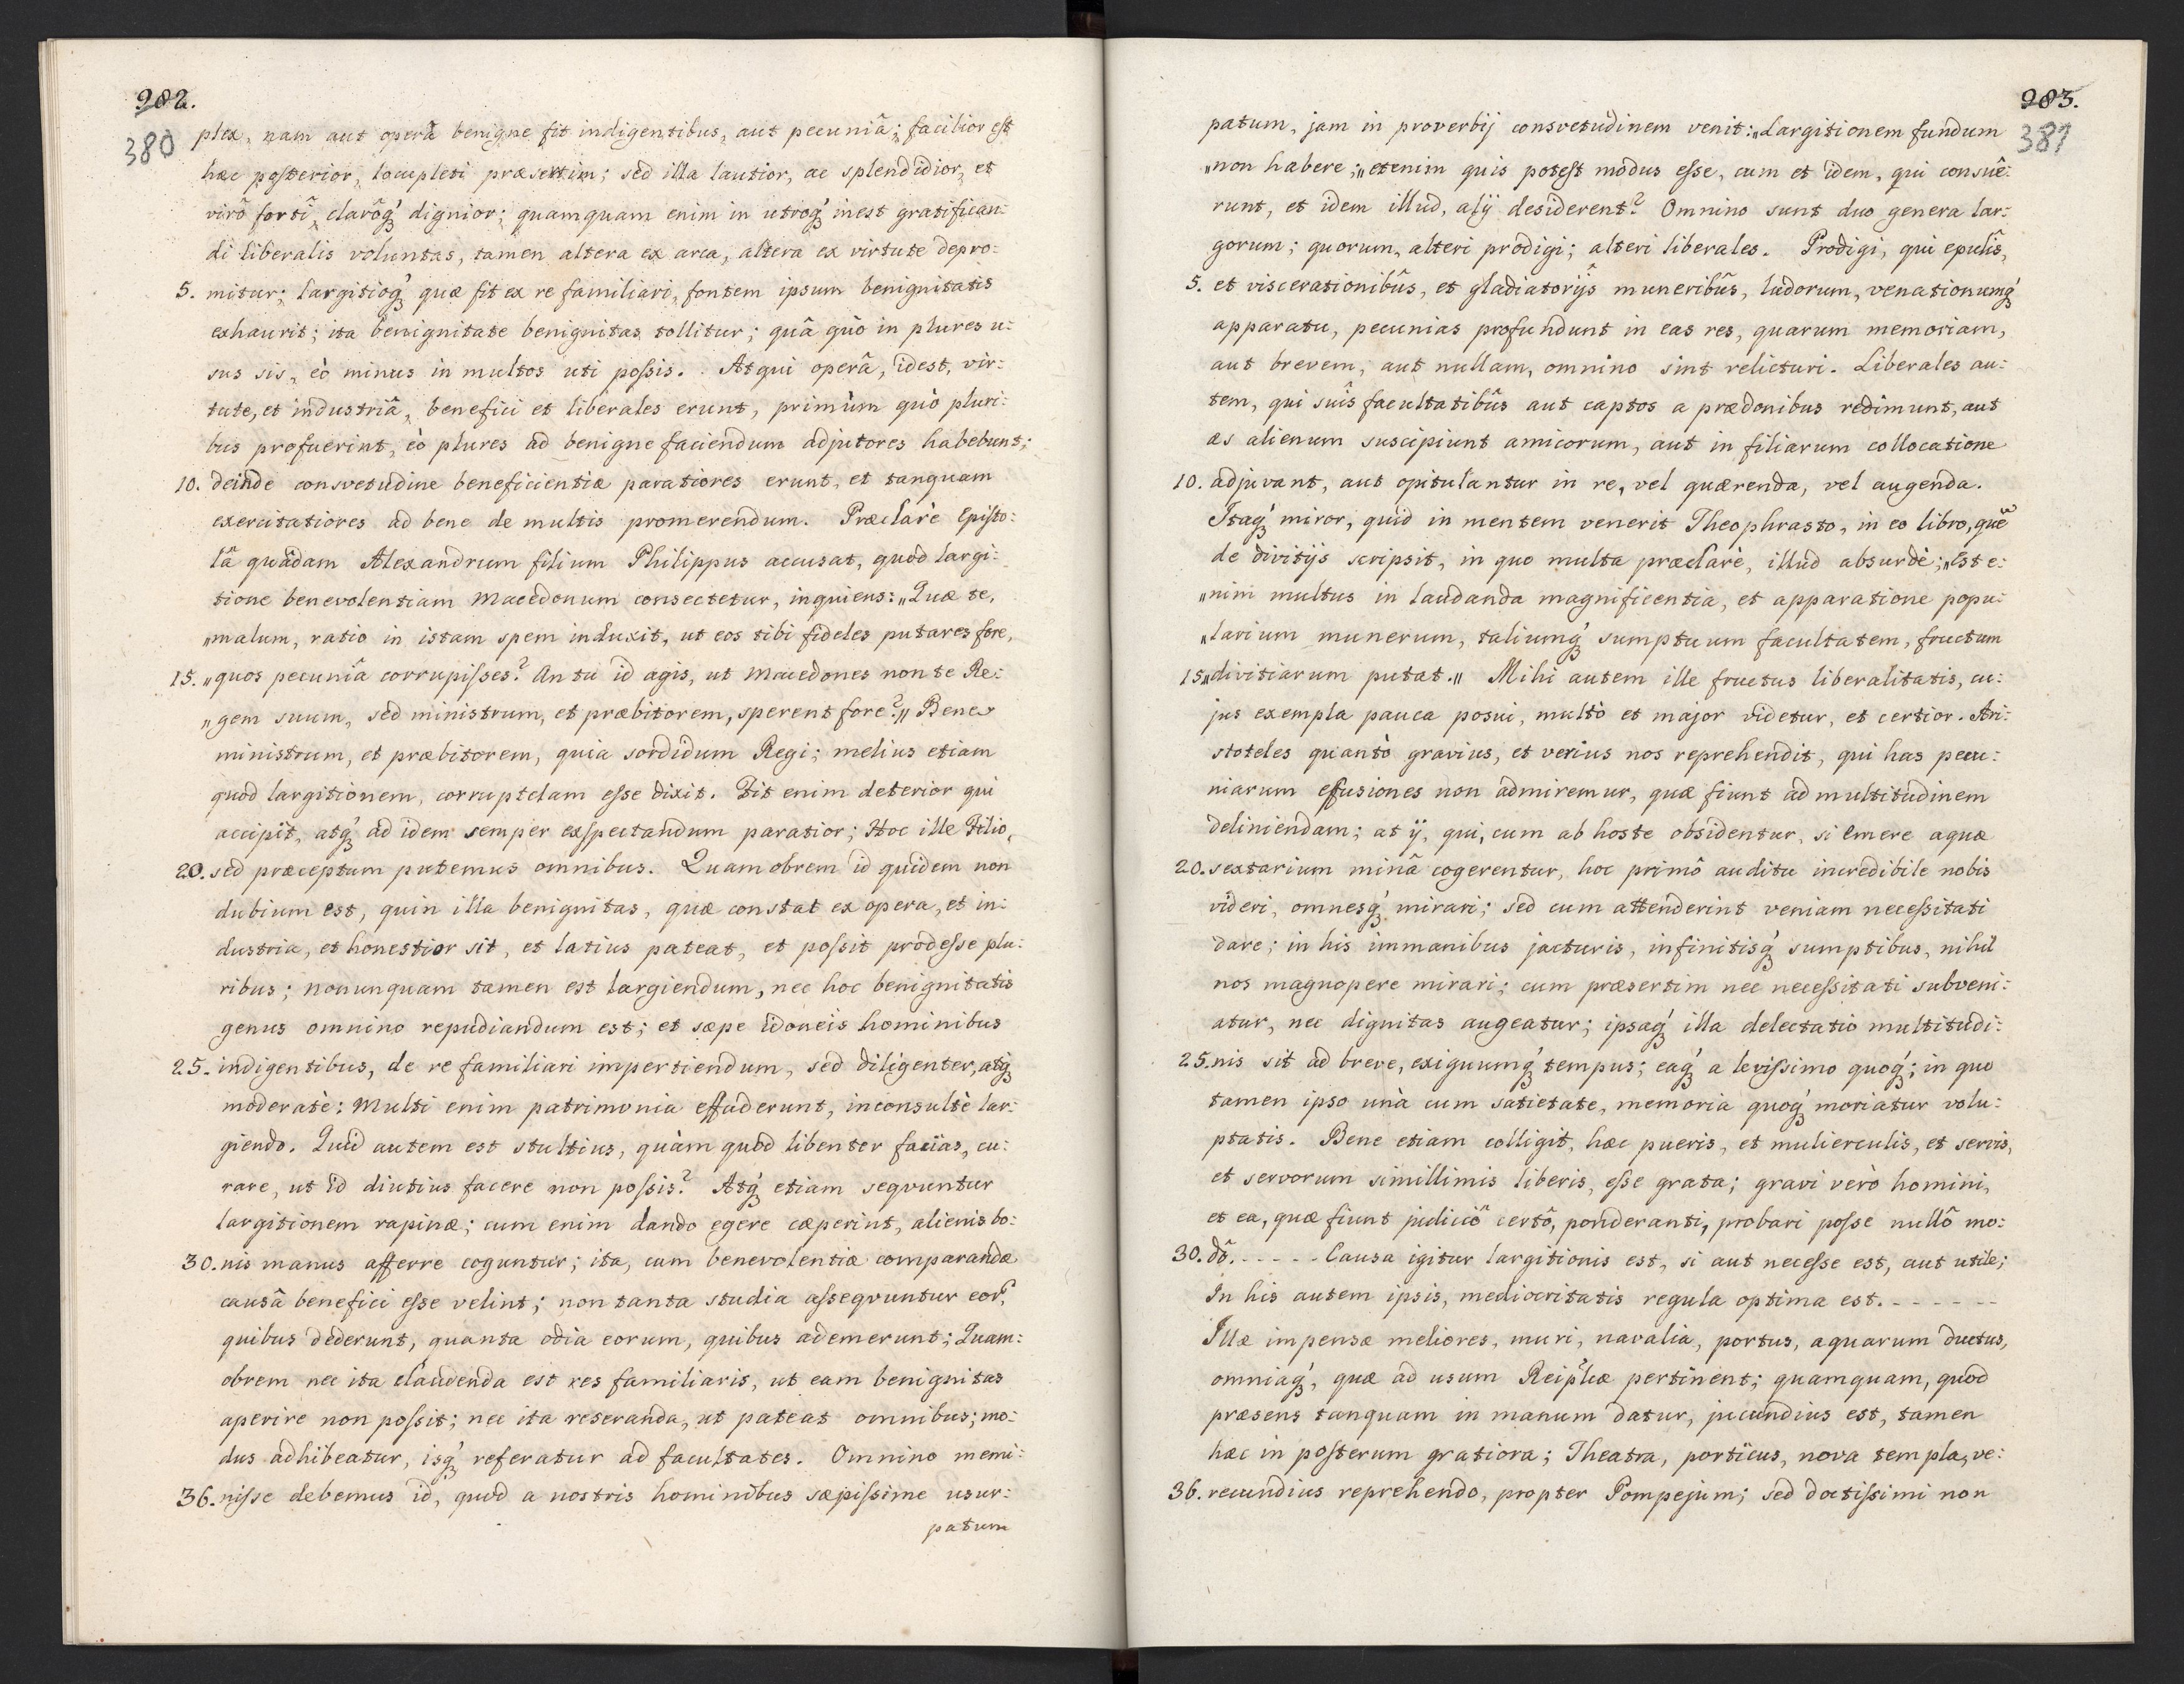 982.
380
plex, nam aut operâ benigne fit indigentibus, aut pecuniâ; facilior est
hæc posterior, locupleti præsertim; sed illa lautior, ac splendidior, et
virô fortî, clarôq́ꝫ dignior; quamquam enim in utroq́ꝫ inest gratifican:
di liberalis voluntas, tamen altera ex arca, altera ex virtute depro:
5. mitur; largitioq́ꝫ quæ fit ex re familiari, fontem ipsum benignitatis
exhaurit; ita benignitate benignitas tollitur; quâ quò in plures u:
sus sis, eò minus in multos uti poſsis. Atqui operâ, idest, vir:
tute, et industriâ, benefici et liberales erunt, primùm quò pluri:
bus profuerint, eò plures ad benigne faciendum adjutores habebunt;
10. deinde consvetudine beneficientiæ paratiores erunt, et tanquam
exercitatiores ad bene de multis promerendum. Præclarè Episto:
lâ quâdam Alexandrum filium Philippus accusat, quod largi:
tione benevolentiam Macedonum consectetur, inquiens: „Quæ te,
„malum, ratio in istam spem induxit, ut eos tibi fideles putares fore,
15. „quos pecuniâ corrupiſses? An tu id agis, ut Macedones non te Re:
„gem suum, sed ministrum, et præbitorem, sperent fore?„ Bene
ministrum, et præbitorem, quia sordidum Regi; melius etiam
quod largitionem, corruptelam eſse dixit. Fit enim deterior qui
accipit, atq́ꝫ ad idem semper exspectandum paratior; Hoc ille Filio,
20. sed præceptum putemus omnibus. Quamobrem id quidem non
dubium est, quin illa benignitas, quæ constat ex opera, et in:
dustria, et honestior sit, et latius pateat, et poſsit prodeſse plu:
ribus; nonunquam tamen est largiendum, nec hoc benignitatis
genus omnino repudiandum est; et sæpe idoneis hominibus
25. indigentibus, de re familiari impertiendum, sed diligenter, atq́ꝫ
moderatè: Multi enim patrimonia effuderunt, inconsultè lar:
giendo. Quid autem est stultius, quàm quod libenter facias, cu:
rare, ut id diutius facere non poſsis? Atq́ꝫ etiam seqvuntur
largitionem rapinæ; cum enim dando egere cæperint, alienis bo:
30. nis manus afferre coguntur; ita, cum benevolentiæ comparandæ
causâ benefici eſse velint; non tanta studia aſseqvuntur eoꝝ,
quibus dederunt, quanta odia eorum, quibus ademerunt; Quam:
obrem nec ita claudenda est res familiaris, ut eam benignitas
aperire non poſsit; nec ita reseranda, ut pateat omnibus; mo:
dus adhibeatur, isq́ꝫ referatur ad facultates. Omnino memi:
36. niſse debemus id, quod a nostris hominibus sæpiſsime usur:
patum
983.
381
patum, jam in proverbij consvetudinem venit: „Largitionem fundum
„non habere;„ etenim quis potest modus eſse, cum et idem, qui consuê:
runt, et idem illud, alij desiderent? Omnino sunt duo genera lar:
gorum; quorum, alteri prodigi; alteri liberales. Prodigi, qui epulîs,
5. et viscerationibûs, et gladiatorijs muneribûs, ludorum, venationumq́ꝫ
apparatu, pecunias profundunt in eas res, quarum memoriam,
aut brevem, aut nullam, omnino sint relicturi. Liberales au:
tem, qui suîs facultatibûs aut captos a prædonibus redimunt, aut
æs alienum suscipiunt amicorum, aut in filiarum collocatione
10. adjuvant, aut opitulantur in re, vel quærenda, vel augenda.
Itaq́ꝫ miror, quid in mentem venerit Theophrasto, in eo libro, quẽ
de divitijs scripsit, in quo multa præclarè, illud absurdè; „Est e:
„nim multus in laudanda magnificentia, et apparatione popu:
„larium munerum, taliumq́ꝫ sumptuum facultatem, fructum
15 „divitiarum putat.„ Mihi autem ille fructus liberalitatis, cu:
jus exempla pauca posui, multò et major videtur, et certior. Ari:
stoteles quantò gravius, et verius nos reprehendit, qui has pecu:
niarum effusiones non admiremur, quæ fiunt ad multitudinem
deliniendam; at ij, qui, cum ab hoste obsidentur, si emere aquæ
20. sextarium minâ cogerentur, hoc primô auditu incredibile nobis
videri, omnesq́ꝫ mirari; sed cum attenderint veniam neceſsitati
dare; in his immanibus jacturis, infinitisq́ꝫ sumptibus, nihil
nos magnopere mirari; cum præsertim nec neceſsitati subveni:
atur, nec dignitas augeatur; ipsaq́ꝫ illa delectatio multitudi:
25. nis sit ad breve, exiguumq́ꝫ tempus; eaq́ꝫ a leviſsimo quoq́ꝫ; in quo
tamen ipso unà cum satietate, memoria quoq́ꝫ moriatur volu:
ptatis. Bene etiam colligit, hæc pueris, et mulierculis, et servis,
et servorum simillimis liberis, eſse grata; gravi verò homini,
et ea, quæ fiunt judiciô certô, ponderanti, probari poſse nullô mo:
30. dô. - - - - - Causa igitur largitionis est, si aut neceſse est, aut utile;
In his autem ipsis, mediocritatis regula optima est. - - - - - -
Illæ impensæ meliores, muri, navalia, portus, aquarum ductus,
omniaq́ꝫ, quæ ad usum Reiplicæ pertinent; quamquam, quod
præsens tanquam in manum datur, jucundius est, tamen
hæc in posterum gratiora; Theatra, porticus, nova templa, ve:
36. recundius reprehendo, propter Pompejum; sed doctiſsimi non